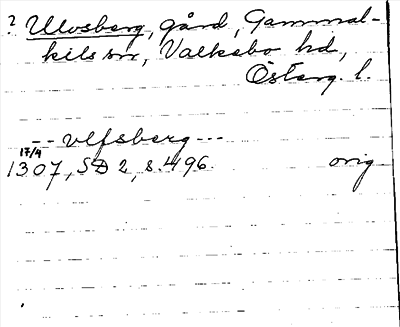 ? Ulvsberg, gård, Gammal-
kils sn, Valkebo hd,
Österg. l.
-- vlfsberg ---
17/4
1307, SD 2, s. 496. orig